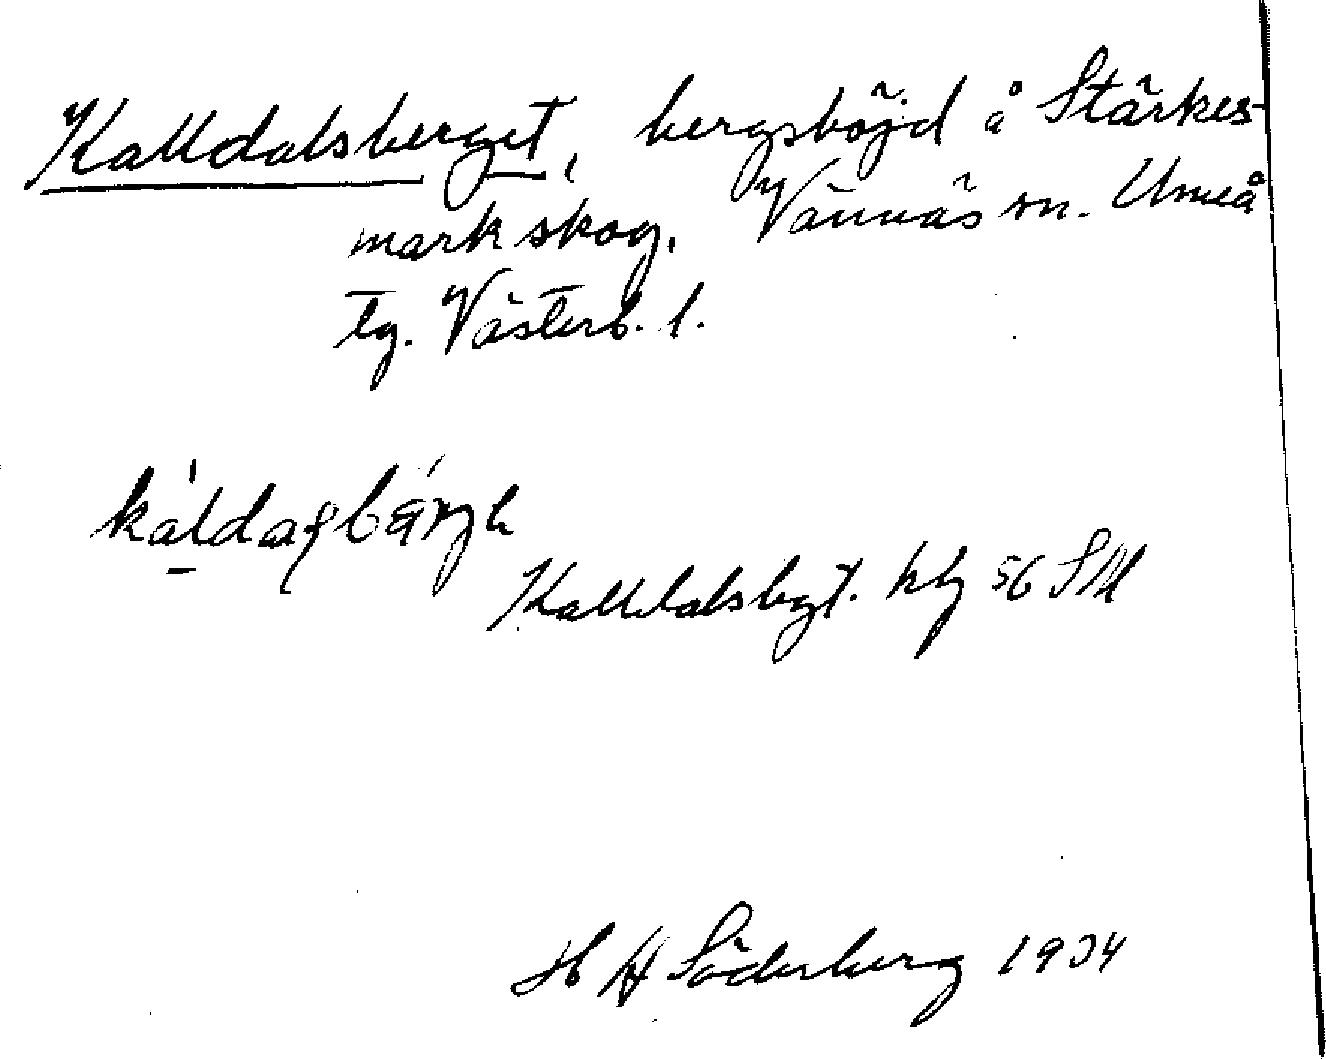 Kalldalsberget, bergshöjd å Stärkes-
mark skog, Vännäs sn. Umeå
tg. Västerb. l.
Kalldalsbgt. kbl 56 SM
H H Söderberg 1934